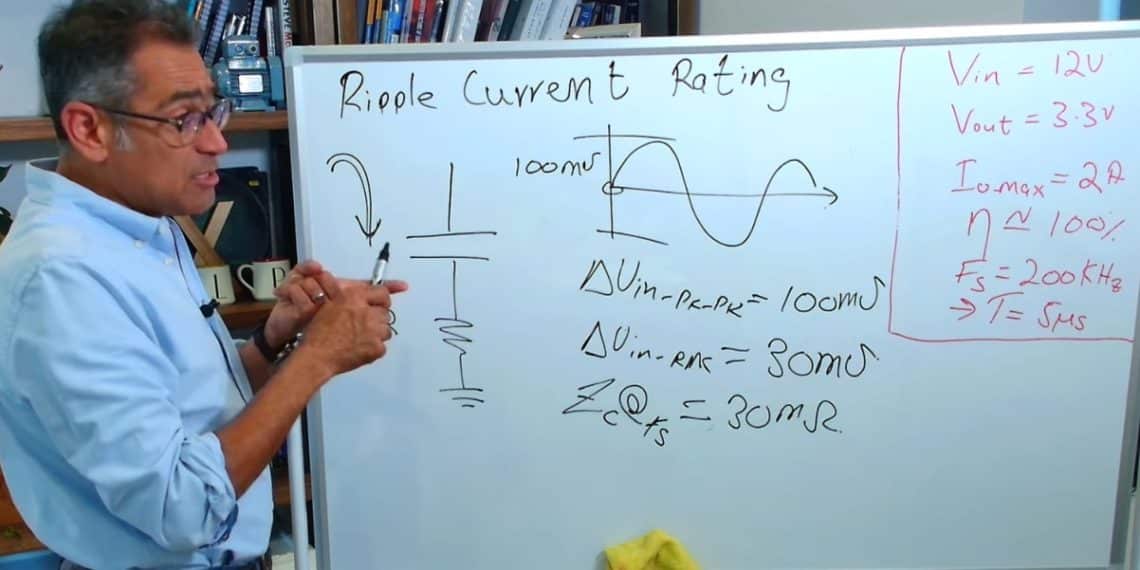 Ripple Current Rating
100mV
ΔVin-PK-PK = 100mV
ΔVin-RMS = 30mV
Zc@fs = 30mΩ
Vin = 12V
Vout = 3.3V
Io-max = 2A
η ≃ 100%
Fs = 200KHz
→ T = 5μs